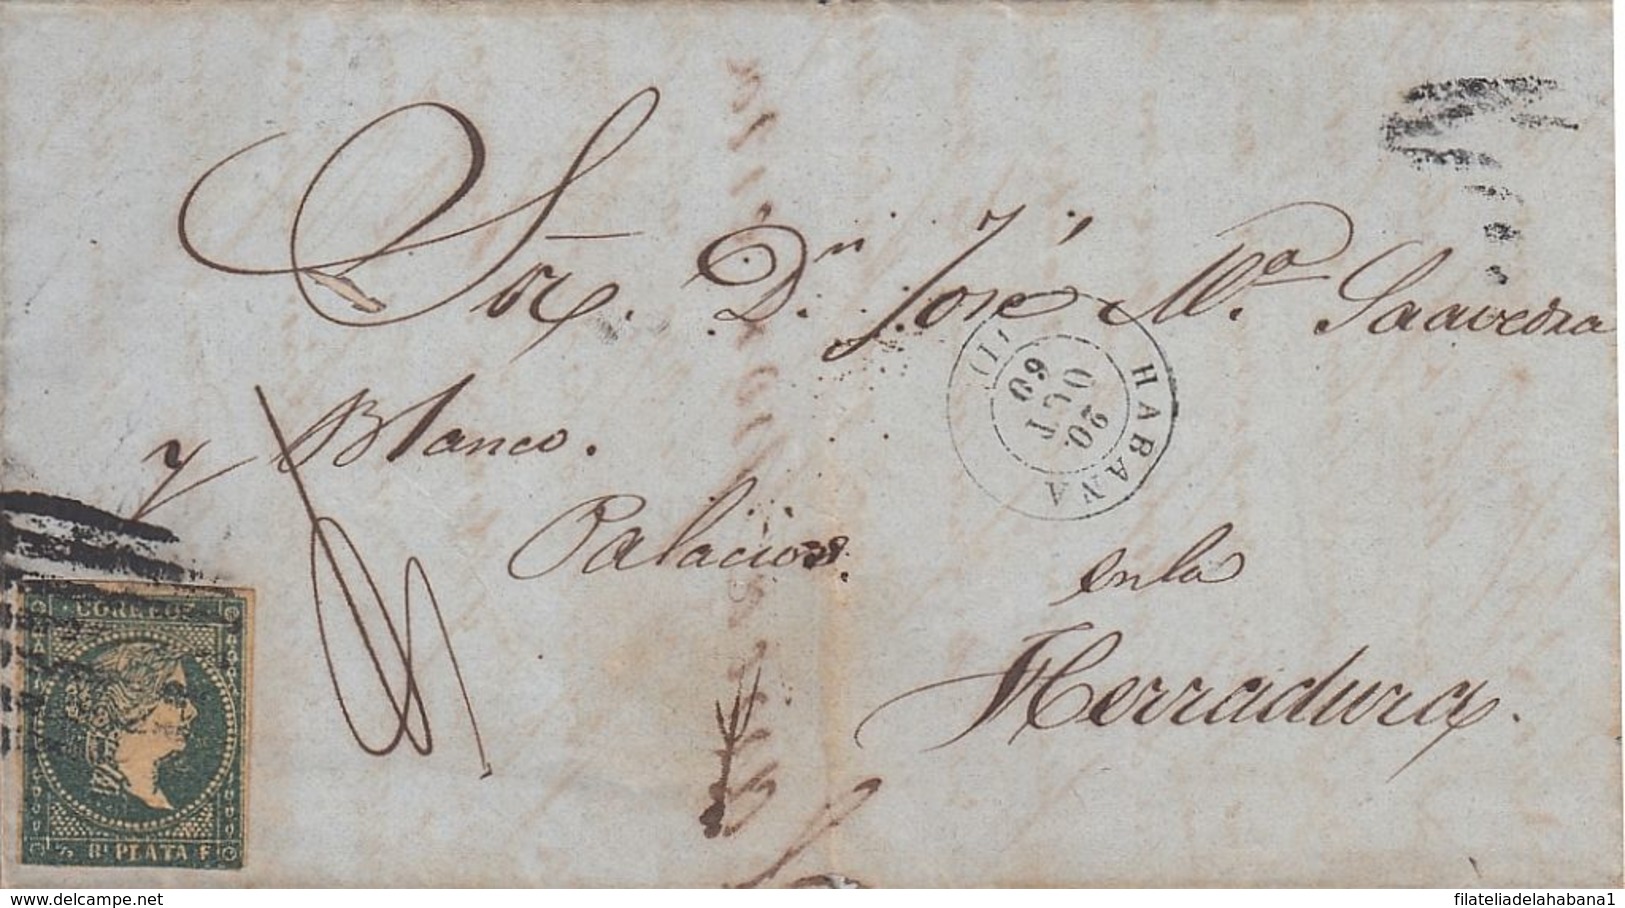 Sor. Dn. José Ma. Saavedra
y Blanco.
Palacios.
en la
Herradura.
HABANA
20
OCT
60
(1)
CORREOS
½ Rl PLATA F
filateliadelahabana1
delcampe.net